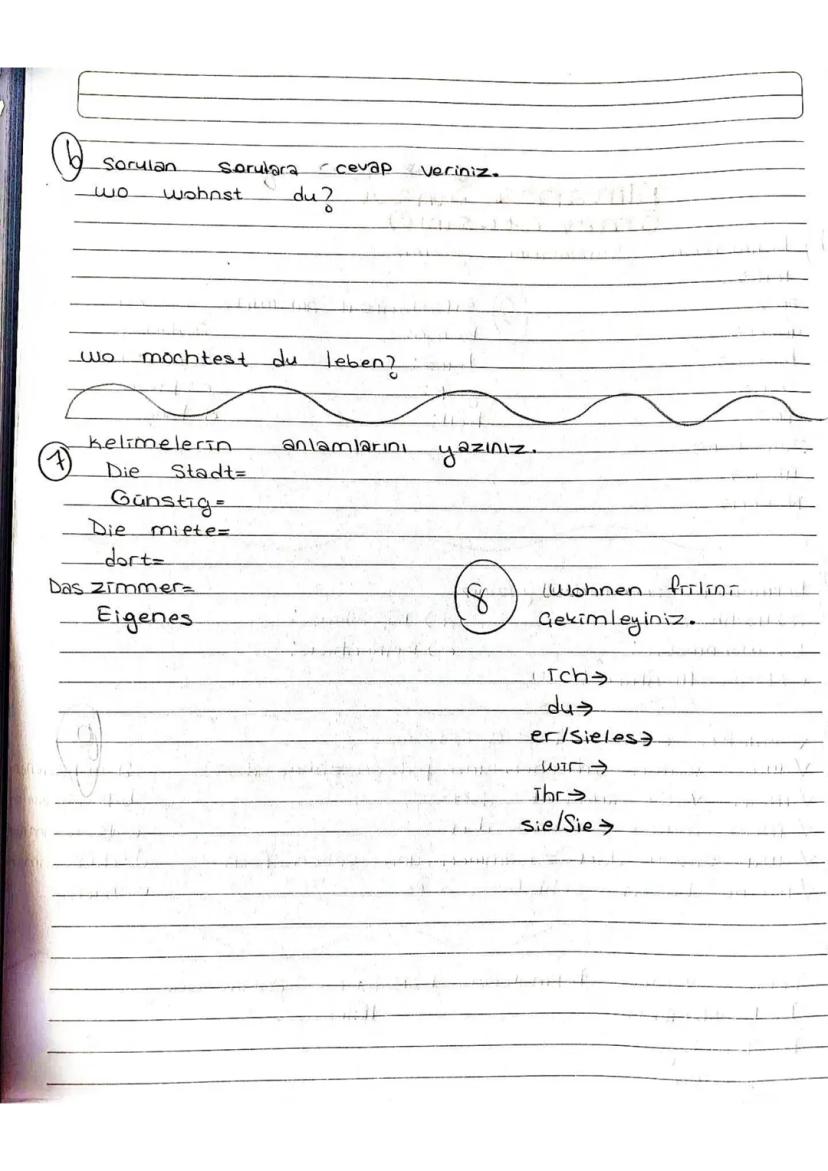 6 Sorulan sorulara cevap veriniz.
wo wohnst du?
wo mochtest du leben?
7 kelimelerin anlamlarını yazınız.
Die Stadt=
Günstig=
Die miete=
dort=
Das zimmer=
Eigenes
8 Wohnen fiilini
Çekimleyiniz.
ich→
du→
er/sie/es→
wir→
Ihr→
sie/Sie→